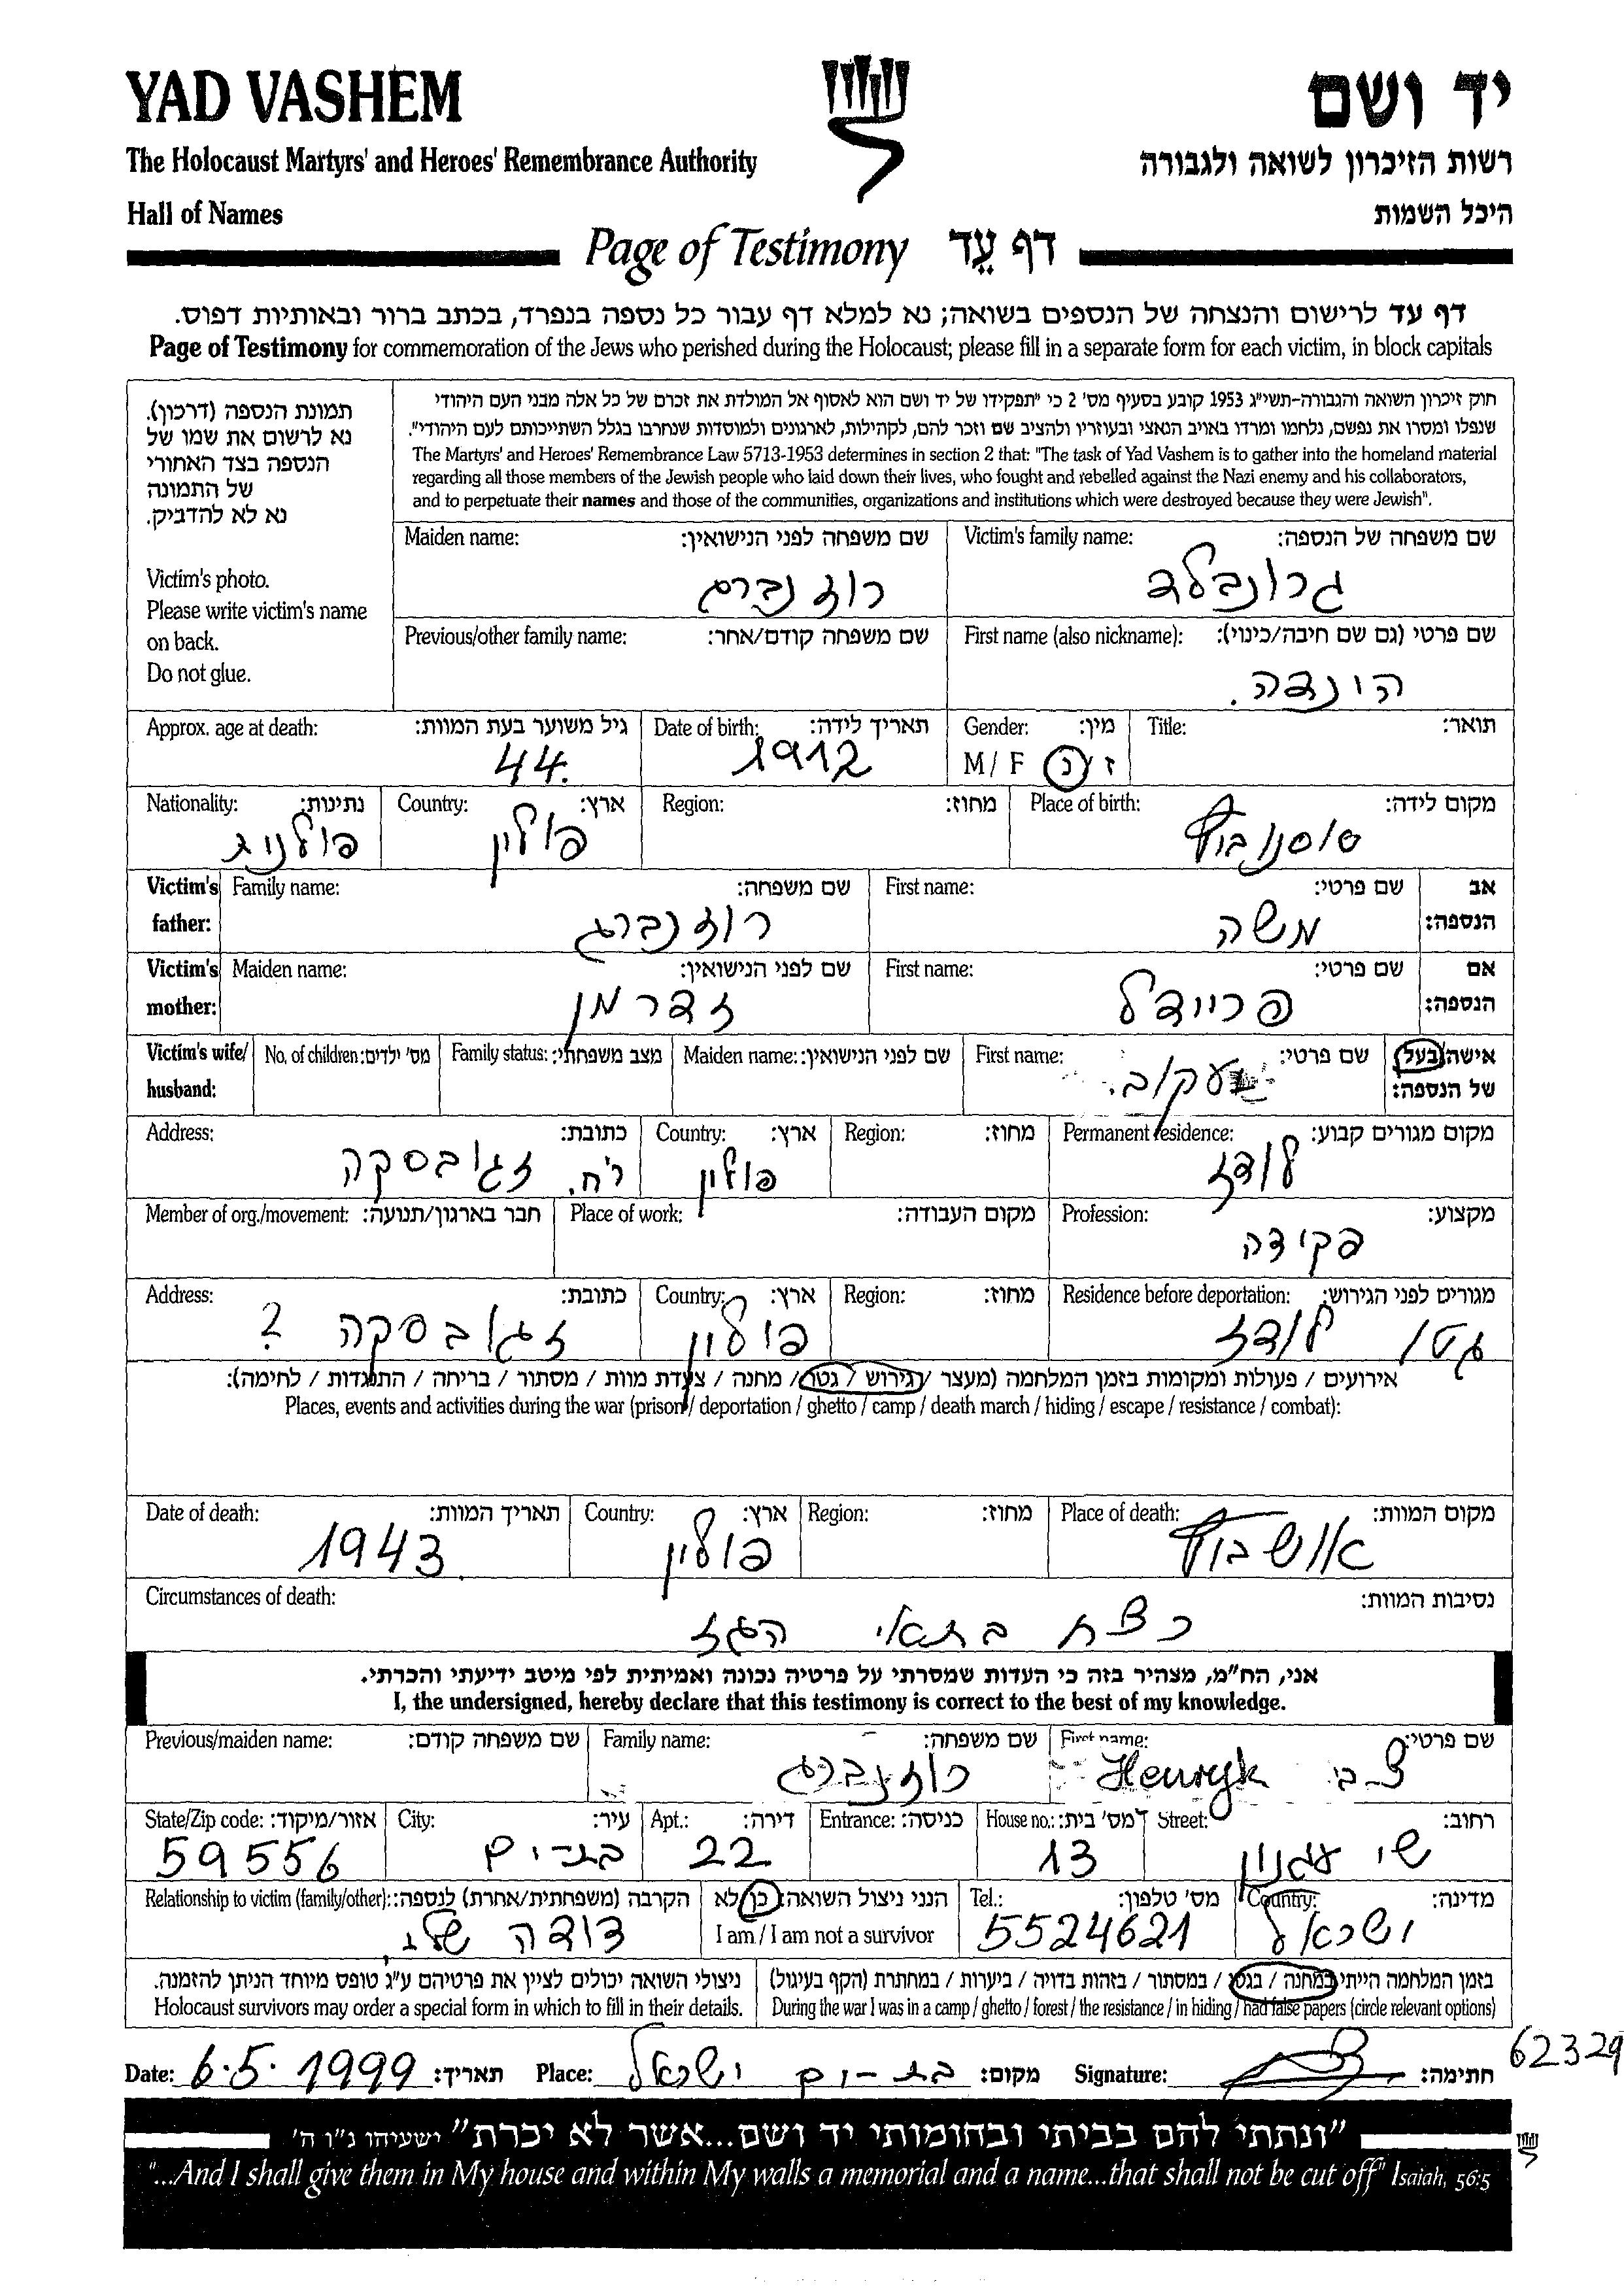 YAD VASHEM
יד ושם
The Holocaust Martyrs' and Heroes' Remembrance Authority
רשות הזיכרון לשואה ולגבורה
Hall of Names
היכל השמות
Page of Testimony דף עֵד
דף עד לרישום והנצחה של הנספים בשואה; נא למלא דף עבור כל נספה בנפרד, בכתב ברור ובאותיות דפוס.
Page of Testimony for commemoration of the Jews who perished during the Holocaust; please fill in a separate form for each victim, in block capitals
חוק זיכרון השואה והגבורה-תשי"ג 1953 קובע בסעיף מס' 2 כי "תפקידו של יד ושם הוא לאסוף אל המולדת את זכרם של כל אלה מבני העם היהודי
שנפלו ומסרו את נפשם, נלחמו ומרדו באויב הנאצי ובעוזריו ולהציב שם וזכר להם, לקהילות, לארגונים ולמוסדות שנחרבו בגלל השתייכותם לעם היהודי".
The Martyrs' and Heroes' Remembrance Law 5713-1953 determines in section 2 that: "The task of Yad Vashem is to gather into the homeland material
regarding all those members of the Jewish people who laid down their lives, who fought and rebelled against the Nazi enemy and his collaborators,
and to perpetuate their names and those of the communities, organizations and institutions which were destroyed because they were Jewish".
תמונת הנספה (דרכון).
נא לרשום את שמו של
הנספה בצד האחורי
של התמונה
נא לא להדביק.
Victim's photo.
Please write victim's name
on back.
Do not glue.
Victim's family name: שם משפחה של הנספה:
גרונבלד
Maiden name: שם משפחה לפני הנישואין:
רוזנברג
First name (also nickname): שם פרטי (גם שם חיבה/כינוי):
הונדה.
Previous/other family name: שם משפחה קודם/אחר:
Title: תואר:
Gender: מין:
M / F ז / נ
Date of birth: תאריך לידה:
1912
Approx. age at death: גיל משוער בעת המוות:
44.
Place of birth: מקום לידה:
סוסנובוץ
Region: מחוז:
Country: ארץ:
פולין
Nationality: נתינות:
פולנית
Victim's father: אב הנספה:
First name: שם פרטי:
משה
Family name: שם משפחה:
רוזנברג
Victim's mother: אם הנספה:
First name: שם פרטי:
פריידל
Maiden name: שם לפני הנישואין:
זדרמן
Victim's wife/ husband: אישה/בעל של הנספה:
First name: שם פרטי:
יעקוב.
Maiden name: שם לפני הנישואין:
Family status: מצב משפחתי:
No. of children: מס' ילדים:
Permanent residence: מקום מגורים קבוע:
לודז
Region: מחוז:
Country: ארץ:
פולין
Address: כתובת:
רח. זגובסקה
Profession: מקצוע:
פקידה
Place of work: מקום העבודה:
Member of org./movement: חבר בארגון/תנועה:
Residence before deportation: מגורים לפני הגירוש:
גטו לודז
Region: מחוז:
Country: ארץ:
פולין
Address: כתובת:
זגובסקה ?
אירועים / פעולות ומקומות בזמן המלחמה (מעצר / גירוש / גטו / מחנה / צעדת מוות / מסתור / בריחה / התנגדות / לחימה):
Places, events and activities during the war (prison / deportation / ghetto / camp / death march / hiding / escape / resistance / combat):
Place of death: מקום המוות:
אושבוץ
Region: מחוז:
Country: ארץ:
פולין
Date of death: תאריך המוות:
1943.
Circumstances of death: נסיבות המוות:
רצח בתאי הגז
אני, הח"מ, מצהיר בזה כי העדות שמסרתי על פרטיה נכונה ואמיתית לפי מיטב ידיעתי והכרתי.
I, the undersigned, hereby declare that this testimony is correct to the best of my knowledge.
First name: שם פרטי:
צבי Henryk
Family name: שם משפחה:
רוזנברג
Previous/maiden name: שם משפחה קודם:
Street: רחוב:
שי עגנון
House no.: מס' בית:
13
Entrance: כניסה:
Apt.: דירה:
22
City: עיר:
בת-ים
State/Zip code: אזור/מיקוד:
59556
Country: מדינה:
ישראל
Tel.: מס' טלפון:
5524621
הנני ניצול השואה: כן / לא
I am / I am not a survivor
Relationship to victim (family/other): הקרבה (משפחתית/אחרת) לנספה:
דודה שלי
בזמן המלחמה הייתי במחנה / בגטו / במסתור / בזהות בדויה / ביערות / במחתרת (הקף בעיגול)
During the war I was in a camp / ghetto / forest / the resistance / in hiding / had false papers (circle relevant options)
ניצולי השואה יכולים לציין את פרטיהם ע"ג טופס מיוחד הניתן להזמנה.
Holocaust survivors may order a special form in which to fill in their details.
Date: 6.5.1999 תאריך: Place: בת-ים ישראל מקום: Signature: חתימה:
62329
"ונתתי להם בביתי ובחומותי יד ושם...אשר לא יכרת" ישעיהו נ"ו ה'
"...And I shall give them in My house and within My walls a memorial and a name...that shall not be cut off" Isaiah, 56:5